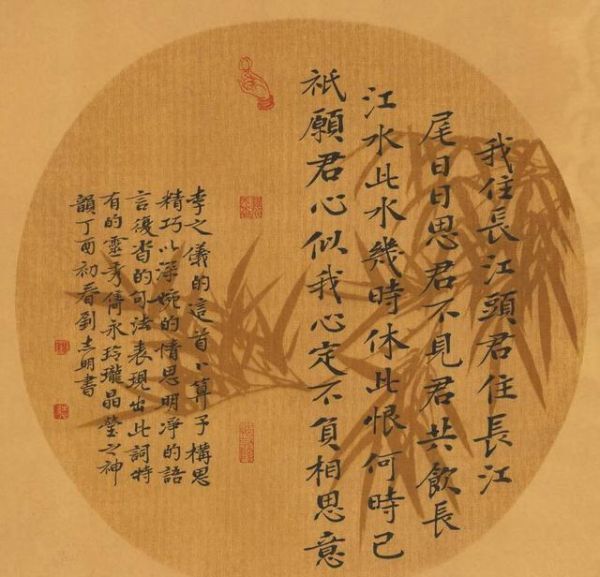 我住長江頭君住長江
尾日日思君不見君共飲長
江水此水幾時休此恨何時已
祇願君心似我心定不負相思意
李之儀的這首卜算子構思
精巧以深婉的情思明凈的語
言復沓的句法表現出此詞特
有的靈秀雋永玲瓏晶瑩之神
韻丁酉初春劉志明書